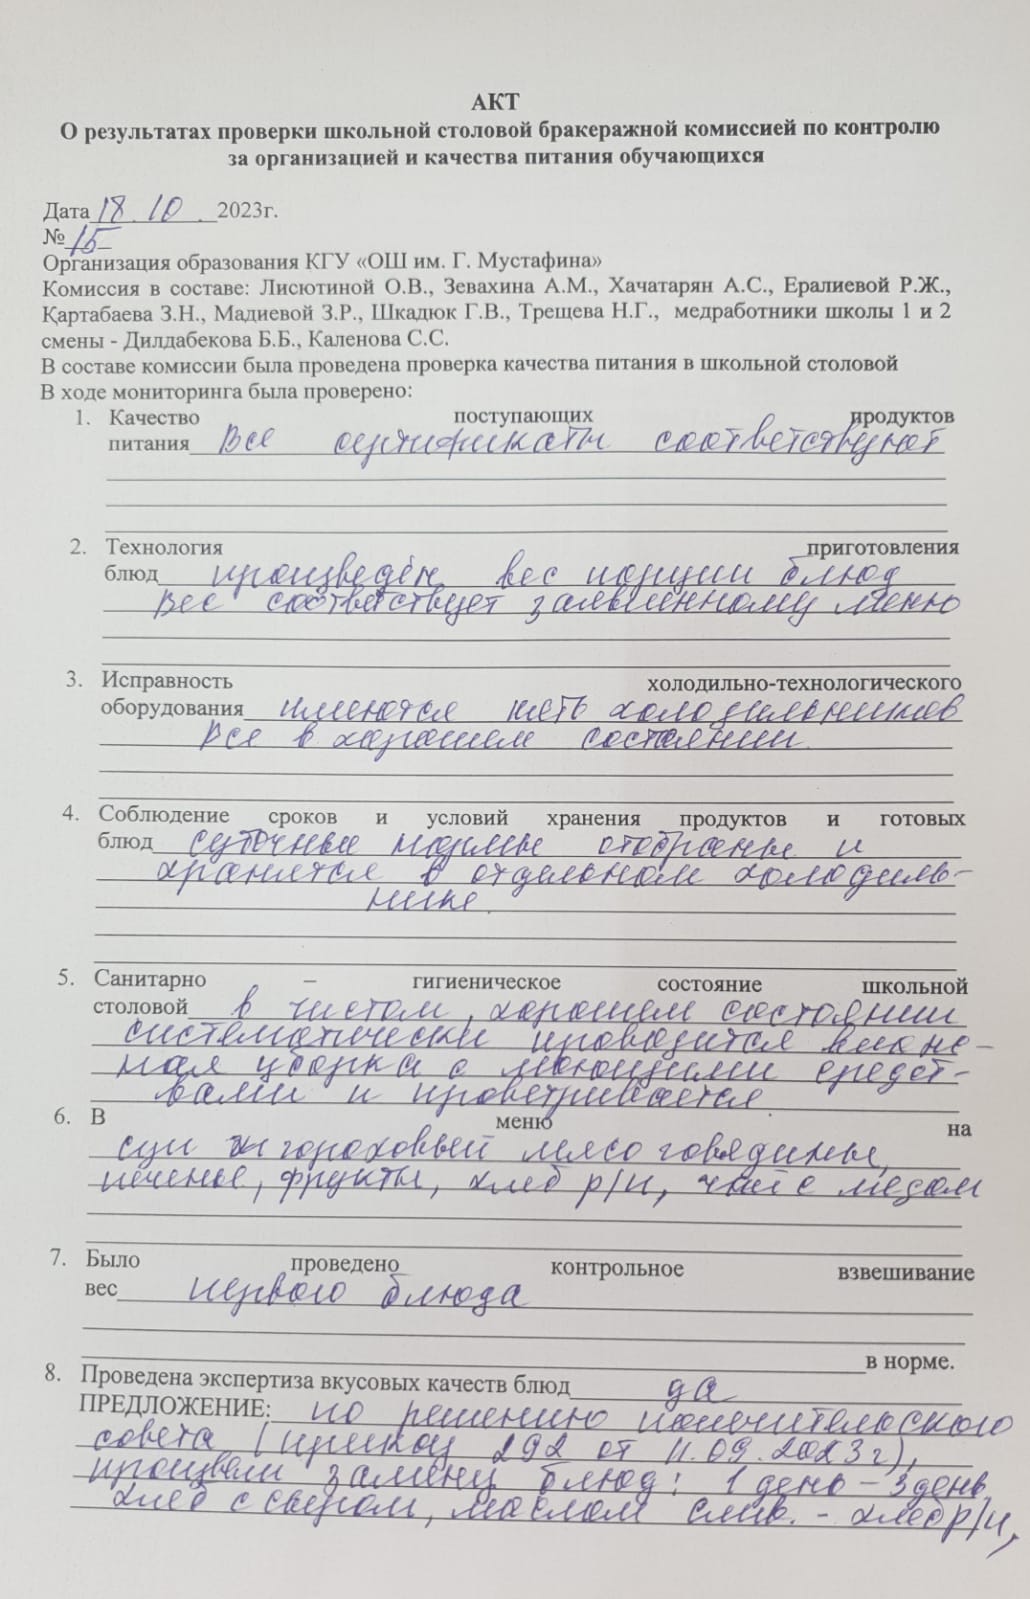 АКТ
О результатах проверки школьной столовой бракеражной комиссией по контролю
за организацией и качества питания обучающихся
Дата 18.10.2023г.
№ 15
Организация образования КГУ «ОШ им. Г. Мустафина»
Комиссия в составе: Лисютиной О.В., Зевахина А.М., Хачатарян А.С., Ералиевой Р.Ж.,
Қартабаева З.Н., Мадиевой З.Р., Шкадюк Г.В., Трещева Н.Г., медработники школы 1 и 2
смены - Дилдабекова Б.Б., Каленова С.С.
В составе комиссии была проведена проверка качества питания в школьной столовой
В ходе мониторинга была проверено:
1. Качество поступающих продуктов
питания Все сертификаты соответствуют
2. Технология приготовления
блюд произведён вес порции блюд
вес соответствует заявленному меню
3. Исправность холодильно-технологического
оборудования имеются пять холодильников
все в хорошем состоянии.
4. Соблюдение сроков и условий хранения продуктов и готовых
блюд суточные нормы отобраны и
хранятся в отдельном холодиль-
нике.
5. Санитарно – гигиеническое состояние школьной
столовой в чистом, хорошем состоянии
систематически проводится влаж-
ная уборка с моющими средст-
вами и проветривается.
6. В меню на
суп гороховый мясо говядины,
печенье, фрукты, хлеб р/п, чай с медом
7. Было проведено контрольное взвешивание
вес первого блюда
в норме.
8. Проведена экспертиза вкусовых качеств блюд да
ПРЕДЛОЖЕНИЕ: по решению попечительского
совета (приказ 292 от 11.09.2023г),
произвели замену блюд: 1 день – 3 день
хлеб с сыром, маслом слив. - хлеб р/п,